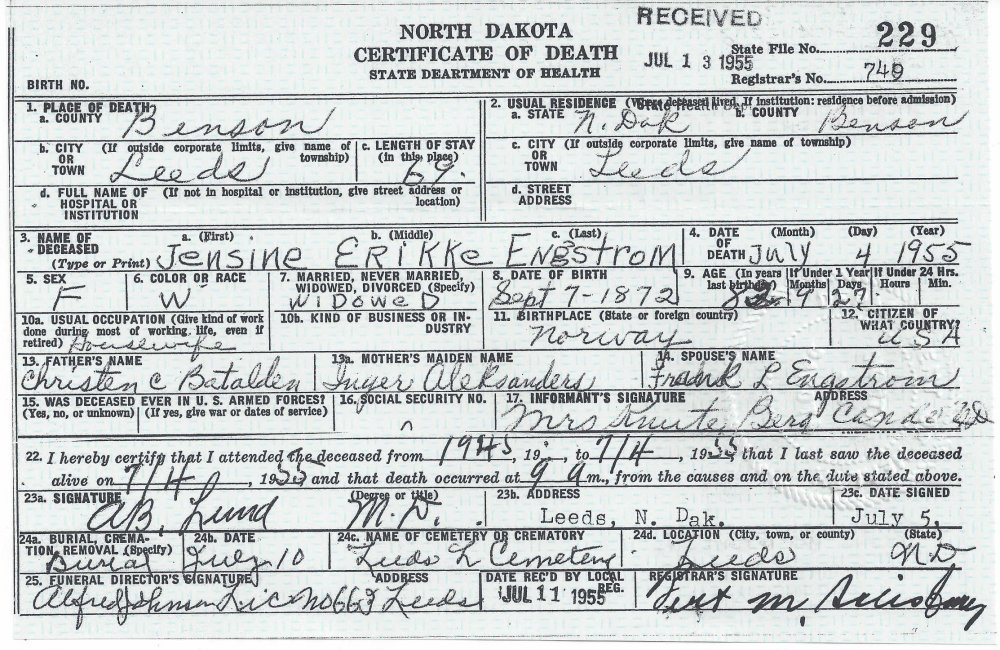 NORTH DAKOTA
CERTIFICATE OF DEATH
STATE DEARTMENT OF HEALTH
RECEIVED
JUL 13 1955
State File No. 229
Registrar's No. 749
BIRTH NO.
1. PLACE OF DEATH
a. COUNTY Benson
2. USUAL RESIDENCE (Where deceased lived. If institution: residence before admission)
State Health Dept.
a. STATE N. Dak b. COUNTY Benson
b. CITY OR TOWN (If outside corporate limits, give name of township) Leeds
c. LENGTH OF STAY (in this place) 69.
c. CITY OR TOWN (If outside corporate limits, give name of township) Leeds
d. FULL NAME OF HOSPITAL OR INSTITUTION (If not in hospital or institution, give street address or location)
d. STREET ADDRESS
3. NAME OF DECEASED (Type or Print) a. (First) b. (Middle) c. (Last)
Jensine ERIKKe ENgSTROM
4. DATE OF DEATH (Month) (Day) (Year)
July 4 1955
5. SEX F
6. COLOR OR RACE W
7. MARRIED, NEVER MARRIED, WIDOWED, DIVORCED (Specify) WIDOWeD
8. DATE OF BIRTH Sept 7-1872
9. AGE (In years last birthday) If Under 1 Year Months Days If Under 24 Hrs. Hours Min.
9 27
10a. USUAL OCCUPATION (Give kind of work done during most of working life, even if retired) Housewife
10b. KIND OF BUSINESS OR INDUSTRY
11. BIRTHPLACE (State or foreign country) Norway
12. CITIZEN OF WHAT COUNTRY? USA
13. FATHER'S NAME Christen C Batalden
13a. MOTHER'S MAIDEN NAME Inger Aleksanders
14. SPOUSE'S NAME Frank L Engstrom
15. WAS DECEASED EVER IN U. S. ARMED FORCES? (Yes, no, or unknown) (If yes, give war or dates of service)
16. SOCIAL SECURITY NO.
17. INFORMANT'S SIGNATURE ADDRESS
Mrs Knute Berg Cando ND
22. I hereby certify that I attended the deceased from 1945, 19 , to 7/4, 1955, that I last saw the deceased
alive on 7/4, 1955 and that death occurred at 9 a m., from the causes and on the date stated above.
23a. SIGNATURE (Degree or title) AB. Lund M.D.
23b. ADDRESS Leeds, N. Dak.
23c. DATE SIGNED July 5,
24a. BURIAL, CREMATION, REMOVAL (Specify) Burial
24b. DATE July 10
24c. NAME OF CEMETERY OR CREMATORY Leeds L Cemetery
24d. LOCATION (City, town, or county) (State) Leeds ND
25. FUNERAL DIRECTOR'S SIGNATURE ADDRESS
Alfred Johnson Lic No 663 Leeds
DATE REC'D BY LOCAL REG. JUL 11 1955
REGISTRAR'S SIGNATURE